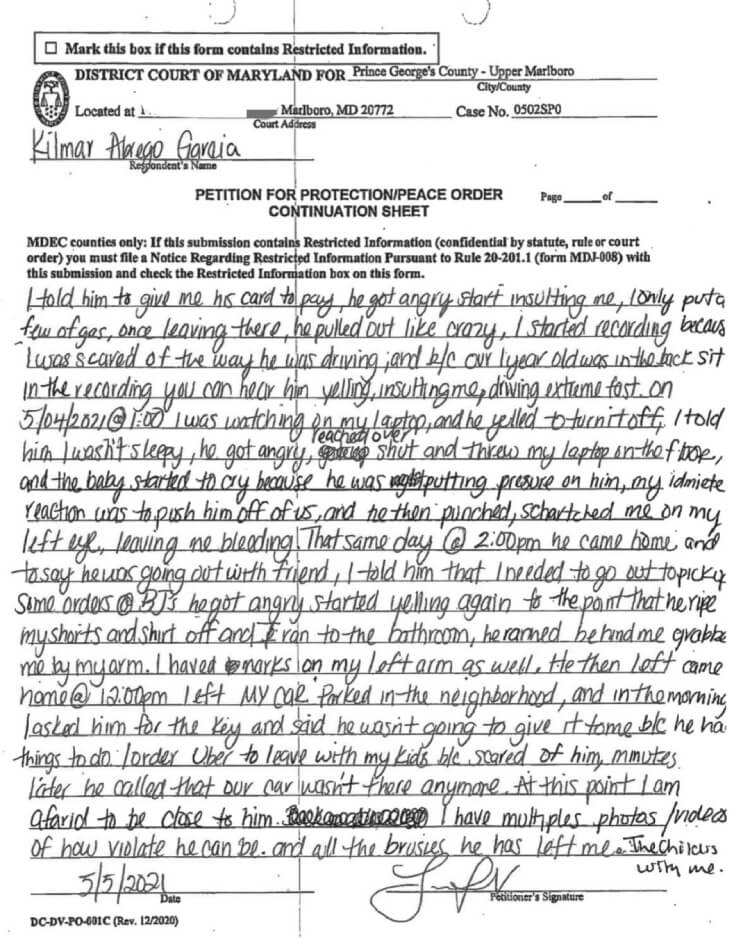 ☐ Mark this box if this form contains Restricted Information.
DISTRICT COURT OF MARYLAND FOR Prince George's County - Upper Marlboro
City/County
Located at Marlboro, MD 20772 Case No. 0502SP0
Court Address
Kilmar Abrego Garcia
Respondent's Name
PETITION FOR PROTECTION/PEACE ORDER Page ____ of ____
CONTINUATION SHEET
MDEC counties only: If this submission contains Restricted Information (confidential by statute, rule or court
order) you must file a Notice Regarding Restricted Information Pursuant to Rule 20-201.1 (form MDJ-008) with
this submission and check the Restricted Information box on this form.
I told him to give me his card to pay, he got angry start insulting me, I only put a
few of gas, once leaving there, he pulled out like crazy, I started recording becaus
I was scared of the way he was driving, and b/c our 1 year old was in the back sit
in the recording you can hear him yelling, insulting me, driving extreme fast. on
5/04/2021 @ 1:00 I was watching on my laptop, and he yelled to turn it off, I told
him I wasn't sleepy, he got angry, reached over shut and threw my laptop on the floor,
and the baby started to cry because he was putting presure on him, my idmiete
reaction was to push him off of us, and he then punched, schartched me on my
left eye, leaving me bleeding. That same day @ 2:00pm he came home and
to say he was going out with friend, I told him that I needed to go out to pick y
some orders @ BJ's he got angry started yelling again to the point that he ripe
my shorts and shirt off and I ran to the bathroom, he ranned behind me grabbe
me by my arm. I haved marks on my left arm as well. He then left came
home @ 12:00pm left MY car parked in the neighborhood, and in the morning
I asked him for the key and said he wasn't going to give it to me b/c he ha
things to do. I order Uber to leave with my kids b/c scared of him, mnutes
later he called that our car wasn't there anymore. At this point I am
afarid to be close to him. I have multiples photos/videos
of how violate he can be. and all the brusies he has left me. The Child is
with me.
5/5/2021
Date Petitioner's Signature
DC-DV-PO-001C (Rev. 12/2020)